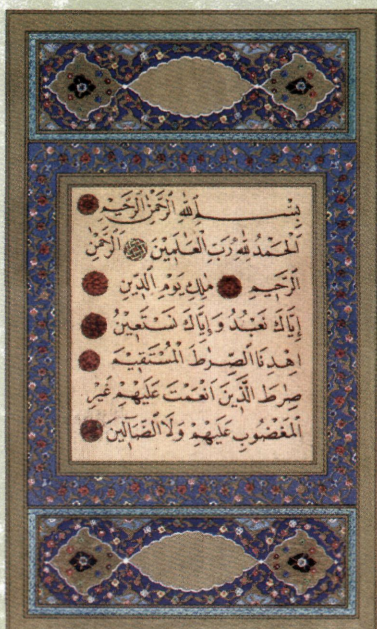 بِسْمِ اللهِ الرَّحْمٰنِ الرَّحِيمِ
اَلْحَمْدُ لِلّٰهِ رَبِّ الْعَالَمِينَ اَلرَّحْمٰنِ
الرَّحِيمِ مٰلِكِ يَوْمِ الدِّينِ
اِيَّاكَ نَعْبُدُ وَاِيَّاكَ نَسْتَعِينُ
اِهْدِنَا الصِّرٰطَ الْمُسْتَقِيمَ
صِرٰطَ الَّذِينَ اَنْعَمْتَ عَلَيْهِمْ غَيْرِ
الْمَغْضُوبِ عَلَيْهِمْ وَلَا الضَّالِّينَ